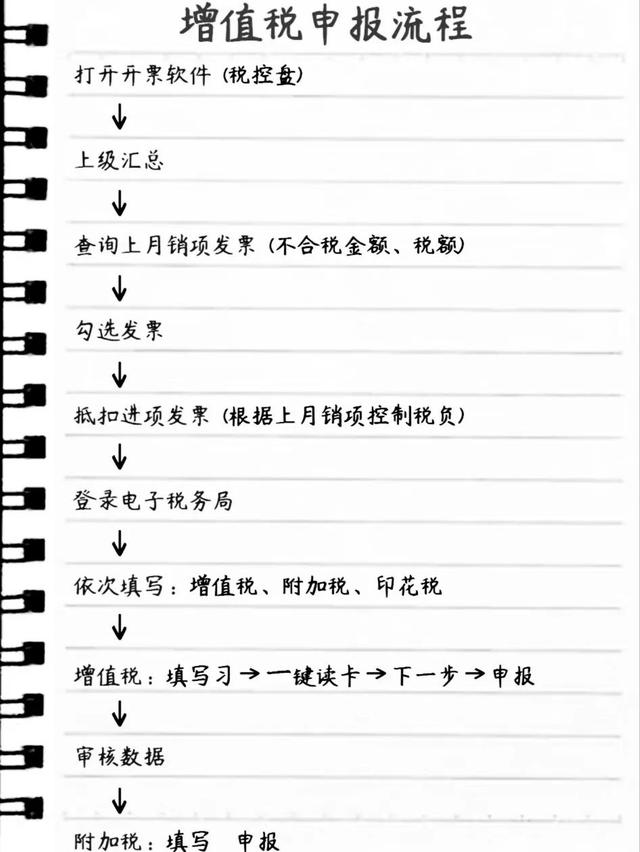 增值税申报流程
打开开票软件 (税控盘)
↓
上级汇总
↓
查询上月销项发票 (不合税金额、税额)
↓
勾选发票
↓
抵扣进项发票 (根据上月销项控制税负)
↓
登录电子税务局
↓
依次填写: 增值税、附加税、印花税
↓
增值税: 填写习→一键读卡→下一步→申报
↓
审核数据
↓
附加税: 填写 申报